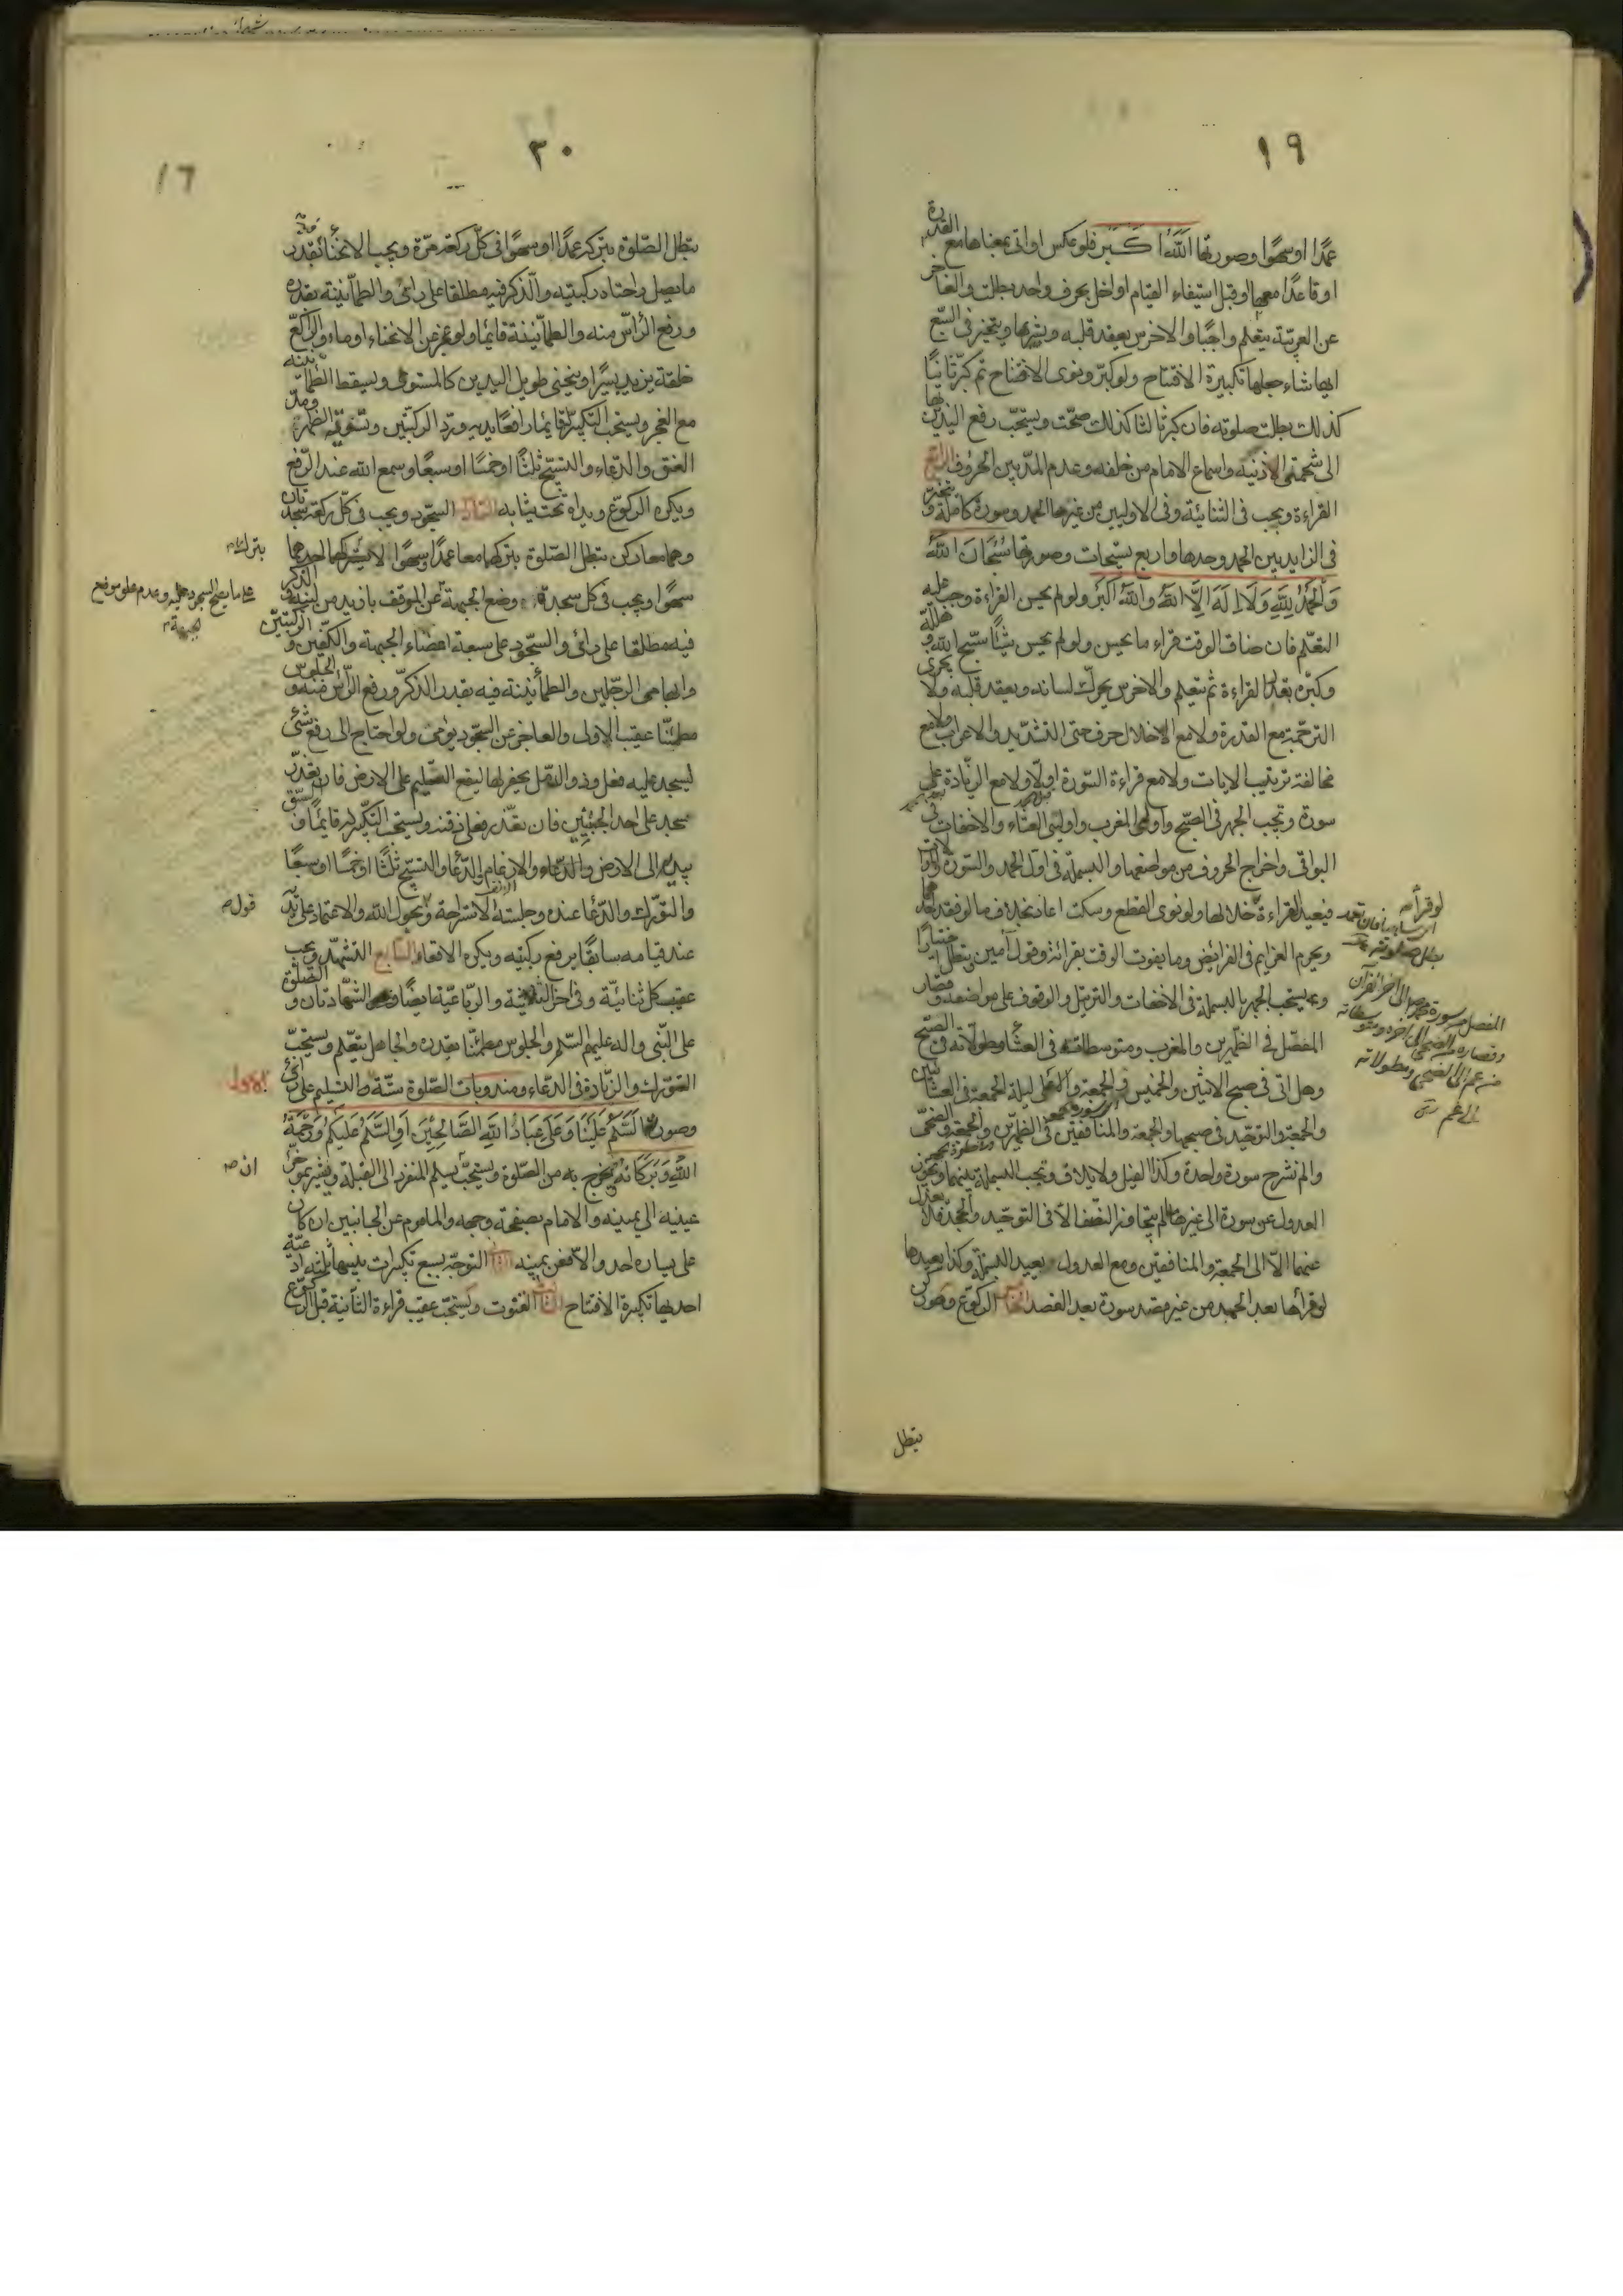 ١٩
عمدًا او سهوًا وصورتها اللّٰه اكبر فلو عكس او اتى بمعناها مع القدرة
او قاعدًا معها او قبل استيفاء القيام او اخل بحرف واحد بطلت والعاجز
عن العربيّة يتعلم واجبًا والاخرس يعقد قلبه ويشير بها ويتخير فى السّبع
ايها شاء جعلها تكبيرة الافتتاح ولو كبّر ونوى الافتتاح ثم كبّر ثانيًا
كذلك بطلت صلوته فان كبر ثالثا كذلك صحّت ويستحبّ رفع اليدين بها
الى شحمتى الاذنيه واسماع الامام من خلفه وعدم المدّ بين الحروف الرابع
القراءة ويجب فى الثنائيّة وفى الاوليين من غيرها الحمد وسورة كاملة ويتخيّر
فى الزايد بين الحمد وحدها واربع تسبيحات وصورتها سُبْحَانَ اللّٰهِ
وَالْحَمْدُ لِلّٰهِ وَلَا اِلٰهَ اِلَّا اللّٰهُ وَاللّٰهُ اَكْبَرُ ولو لم يحسن القراءة وجب عليه
التعلّم فان ضاق الوقت قراء ما يحسن ولو لم يحسن شيئًا سبّح اللّٰه وهلّله
وكبّره بقدر القراءة ثم يتعلم والاخرس يحرّك لسانه ويعقد قلبه ولا يجزى
الترجمة مع القدرة ولا مع الاخلال حرف حتى التشديد والاعراب ولا مع
مخالفة ترتيب الايات ولا مع قراءة السّورة اولًا ولا مع الزّيادة على
سورة ويجب الجهر فى الصّبح واولتى المغرب واولتى العشاء والاخفات فى
البواقى واخراج الحروف من مواضعها والبسملة فى اول الحمد والسّورة
فيعيد القراءة خلالها ولو نوى القطع وسكت اعاد بخلاف ما لو فقد احدهما
ويحرم العزايم فى الفرائض وما يفوت الوقت بقرائته وقول آمين ويبطل اختيارًا
ويستحب الجهر بالبسملة فى الاخفات والترتيل والوقوف على مواضعه وقصار
المفصّل فى الظّهرين والمغرب ومتوسطاته فى العشاء ومطولاته فى الصّبح
وهل اتى فى صبح الاثنين والخميس والجمعة والاعلى ليلة الجمعة فى العشائين
والجمعة والتوحيد فى صبحها والجمعة والمنافقين فى الظهرين والجمعة والضّحى
والم نشرح سورة واحدة وكذا الفيل ولايلاف ويجب البسملة بينهما ويجوز
العدول عن سورة الى غيرها ما لم يتجاوز النّصف الّا فى التوحيد والجحد فلا يعدل
عنهما الّا الى الجمعة والمنافقين ومع العدول يعيد البسملة وكذا يعيدها
لو قرأها بعد الحمد من غير قصد سورة بعد القصد الخامس الركوع وهو ركن
تبطل
لو قرأ
المفصل من سورة محمد ص الى اخر القرآن
وقصاره من الضحى الى اخره ومتوسطاته
من عم الى الضحى ومطولاته
الى عم
٢٠
١٦
تبطل الصّلوة بتركه عمدًا او سهوًا فى كلّ ركعة مرّة ويجب الانحناء بقدر
ما يصل راحتاه ركبتيه والذكر فيه مطلقا على رأى والطمأنينة بقدره
ورفع الرأس منه والطمأنينة قايمًا ولو عجز عن الانحناء اوماء والراكع
خلقة يزيد يسيرًا وينحنى طويل اليدين كالمستوى ويسقط الطمأنينة
مع العجز ويستحب التكبير قايمًا رافعًا يديه وردّ الركبتين وتسوية الظهر ومدّ
العنق والدّعاء والتسبيح ثلثًا او خمسًا او سبعًا وسمع اللّٰه عند الرّفع
ويكره الركوع ويداه تحت ثيابه السادس السجود ويجب فى كلّ ركعة سجدتان
وهما معا ركن تبطل الصّلوة بتركهما معا عمدًا وسهوًا لا بترك احدهما
سهوًا ويجب فى كل سجدة وضع الجبهة عن الموقف بازيد من لبنة والذكر
فيه مطلقا على رأى والسّجود على سبعة اعضاء الجبهة والكفّين والركبتين
وابهامى الرّجلين والطمأنينة فيه بقدر الذكر ورفع الرأس منه والجلوس
مطمئنّا عقيب الاولى والعاجز عن السّجود يومى ولو احتاج الى رفع شئ
ليسجد عليه فعل وذو الدمّل يحفر لها ليقع السّليم على الارض فان تعذّر
سجد على احد الجبينين فان تعذّر فعلى ذقنه ويستحب التكبير قايمًا والسّبق
بيديه الى الارض والدّعاء والارغام والدّعا والتسبيح ثلثًا او خمسًا او سبعًا
والتورّك والدّعا عنده وجلسة الاستراحة وبحول اللّٰه والاعتماد على يديه
عند قيامه سابقًا برفع ركبتيه ويكره الاقعاء السّابع التشهّد ويجب
عقيب كل ثنائيّة وفى اخر الثلاثيّة والرّباعيّة ايضًا وهو الشّهادتان والصّلوة
على النّبى واله عليهم السّلم والجلوس مطمئنًا بقدره والجاهل يتعلّم ويستحبّ
التورّك والزّيادة فى الدّعاء ومندوبات الصّلوة ستّة التسليم على رأى
وصورته السَّلَمُ عَلَيْنَا وَعَلَى عِبَادِ اللّٰهِ الصَّالِحِيْنَ اَوِ السَّلَمُ عَلَيْكُمْ وَرَحْمَةُ
اللّٰهِ وَبَرَكَاتُهُ ويخرج به من الصّلوة ويستحبّ تسليم المنفرد الى القبلة ويشير بمؤخر
عينيه الى يمينه والامام بصفحة وجهه والماموم عن الجانبين ان كان
على يساره احد والّا فعن يمينه الثانى التوجّه بسبع تكبيرات بينها ثلثة ادعية
احديها تكبيرة الافتتاح الثالث القنوت ويستحبّ عقيب قراءة الثّانية قبل الركوع
بترك
على ما يصح السجود عليه وعدم علو موضع
الجبهة
قول
الاول
ان